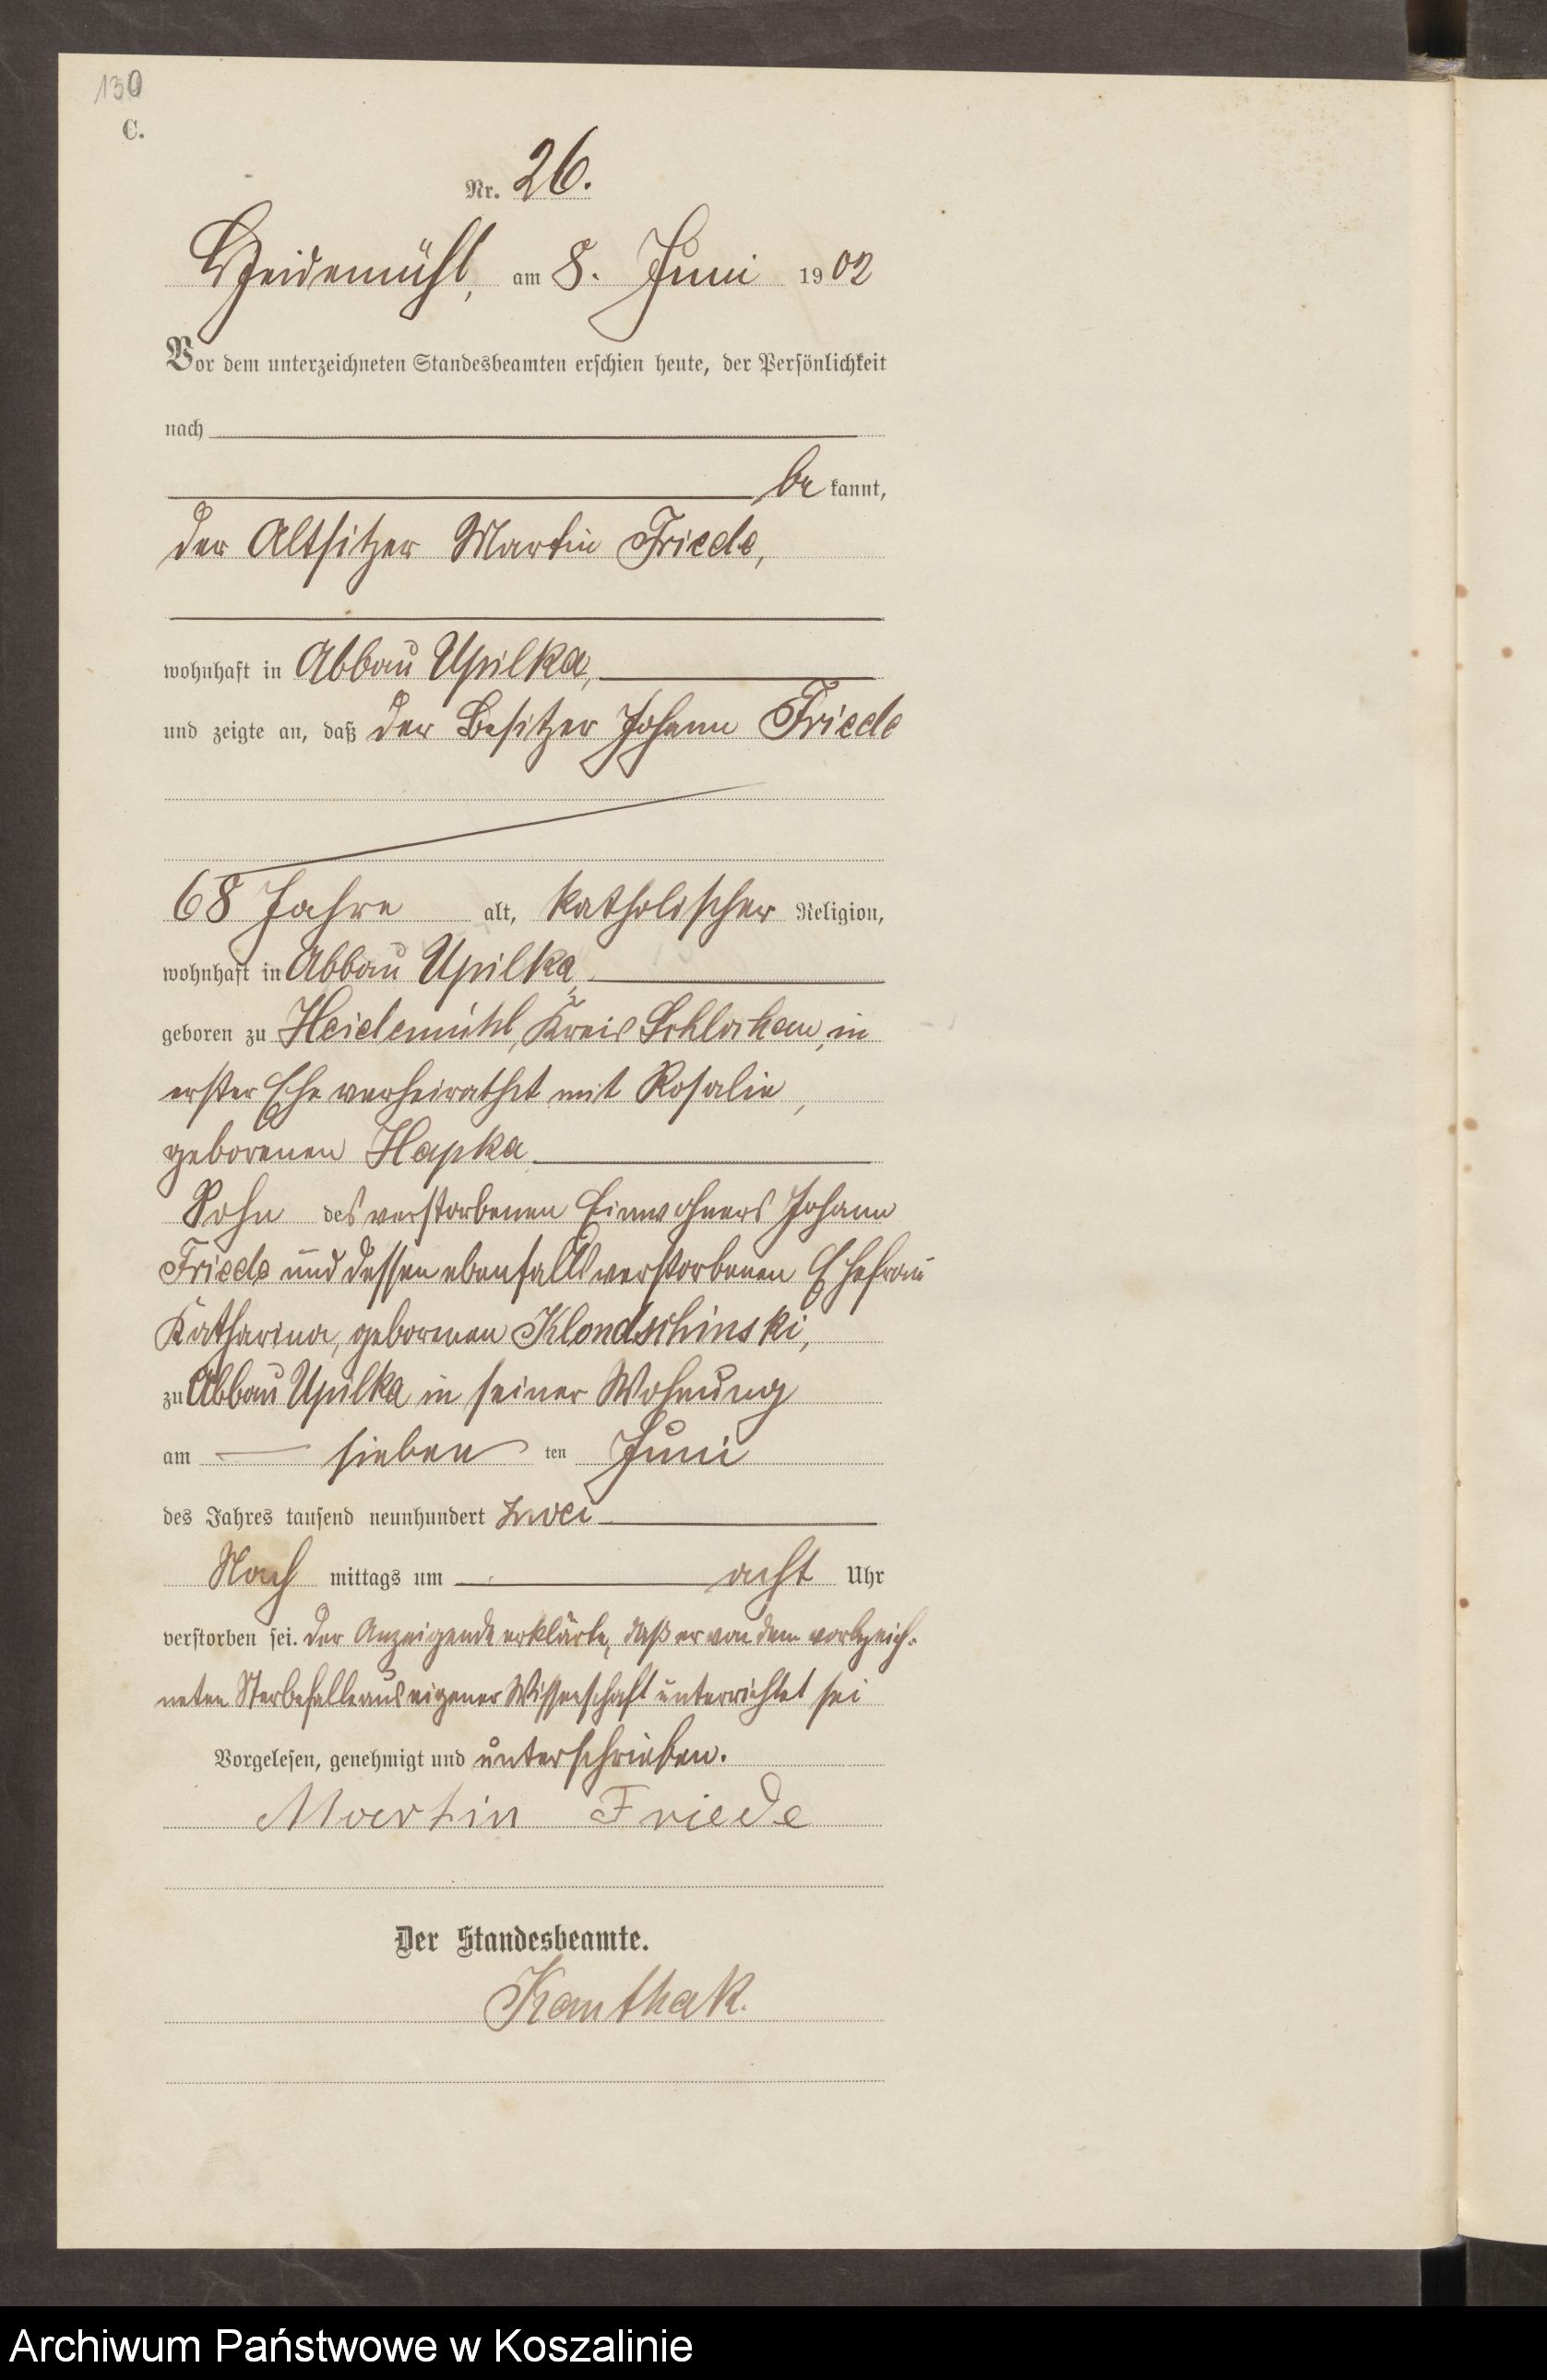 130
C.
Nr. 26.
Heidemühl, am 8. Juni 1902
Vor dem unterzeichneten Standesbeamten erschien heute, der Persönlichkeit
nach
be kannt,
der Altsitzer Martin Friede,
wohnhaft in Abbau Upilka,
und zeigte an, daß der Besitzer Johann Friede
68 Jahre alt, katholischer Religion,
wohnhaft in Abbau Upilka,
geboren zu Heidemühl, Kreis Schlochau, in
erster Ehe verheirathet mit Rosalie,
geborenen Hapka
Sohn des verstorbenen Einwohners Johann
Friede und dessen ebenfalls verstorbenen Ehefrau
Katharina, geborenen Klondschinski,
zu Abbau Upilka in seiner Wohnung
am sieben ten Juni
des Jahres tausend neunhundert zwei
Nach mittags um acht Uhr
verstorben sei. Der Anzeigende erklärte, daß er von dem vorbezeich-
neten Sterbefalle aus eigener Wissenschaft unterrichtet sei
Vorgelesen, genehmigt und unterschrieben.
Martin Friede
Der Standesbeamte.
Kanthak.
Archiwum Państwowe w Koszalinie